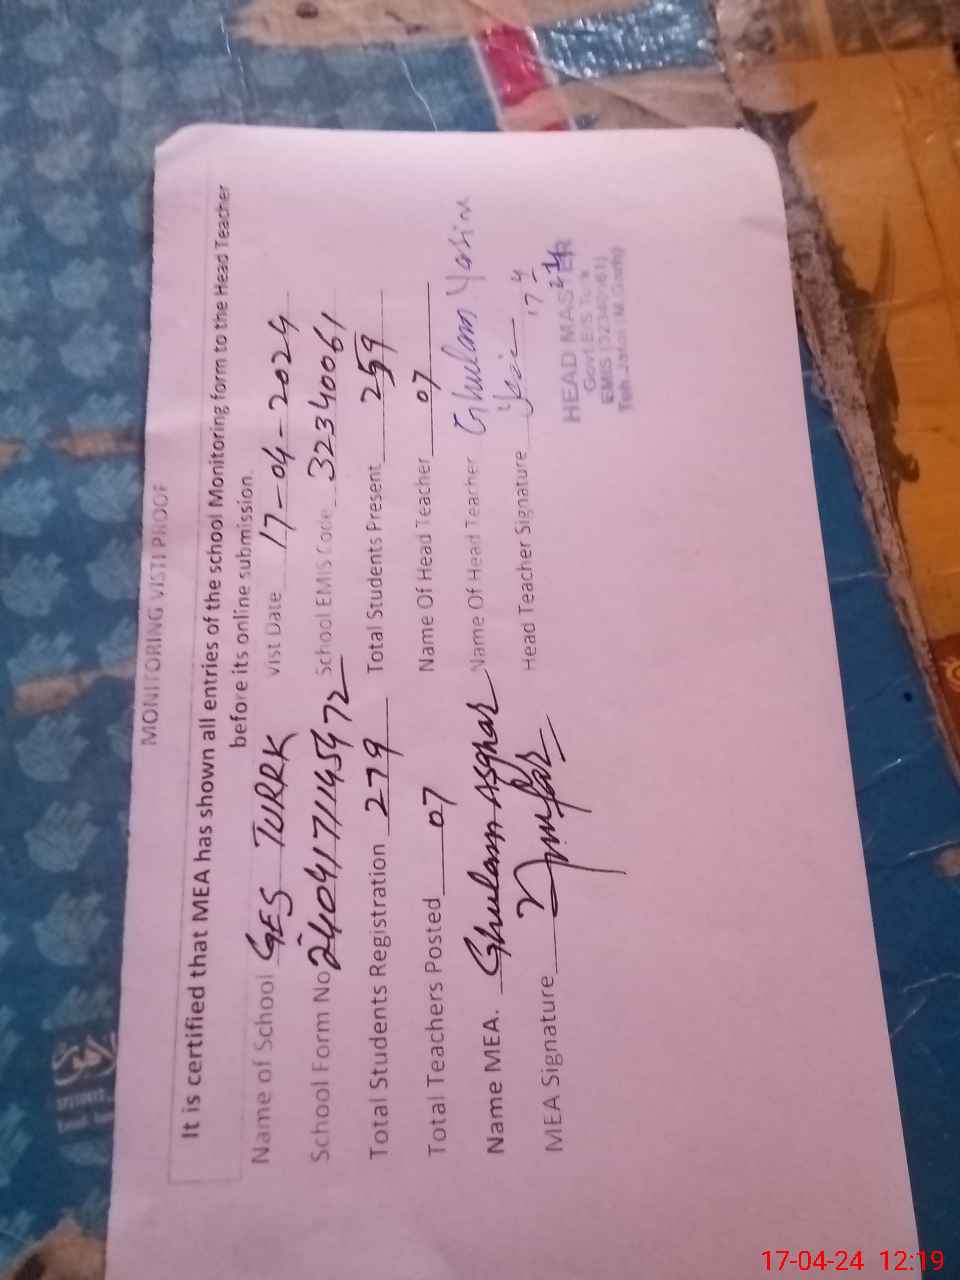 MONITORING VISTI PROOF
It is certified that MEA has shown all entries of the school Monitoring form to the Head Teacher
before its online submission.
Name of School GES TURRK Vist Date 17-04-2024
School Form No 24041711145972 School EMIS Code 32340061
Total Students Registration 279 Total Students Present 259
Total Teachers Posted 07 Name Of Head Teacher 07
Name MEA. Ghulam Asghar Name Of Head Teacher Ghulam Yasin
MEA Signature Head Teacher Signature
17-4
HEAD MASTER
Govt E/S
EMIS (32340061)
17-04-24 12:19